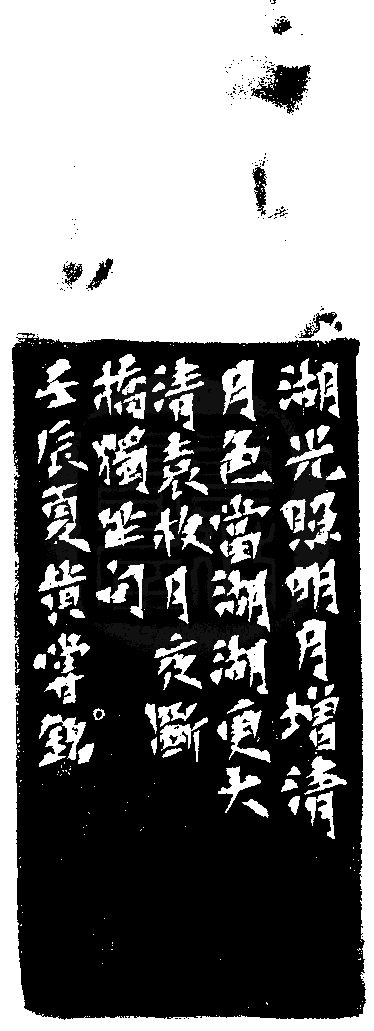 湖光照明月增清
月色當湖湖更大
清袁枚月夜斷
橋獨坐句
壬辰夏黃嘗銘